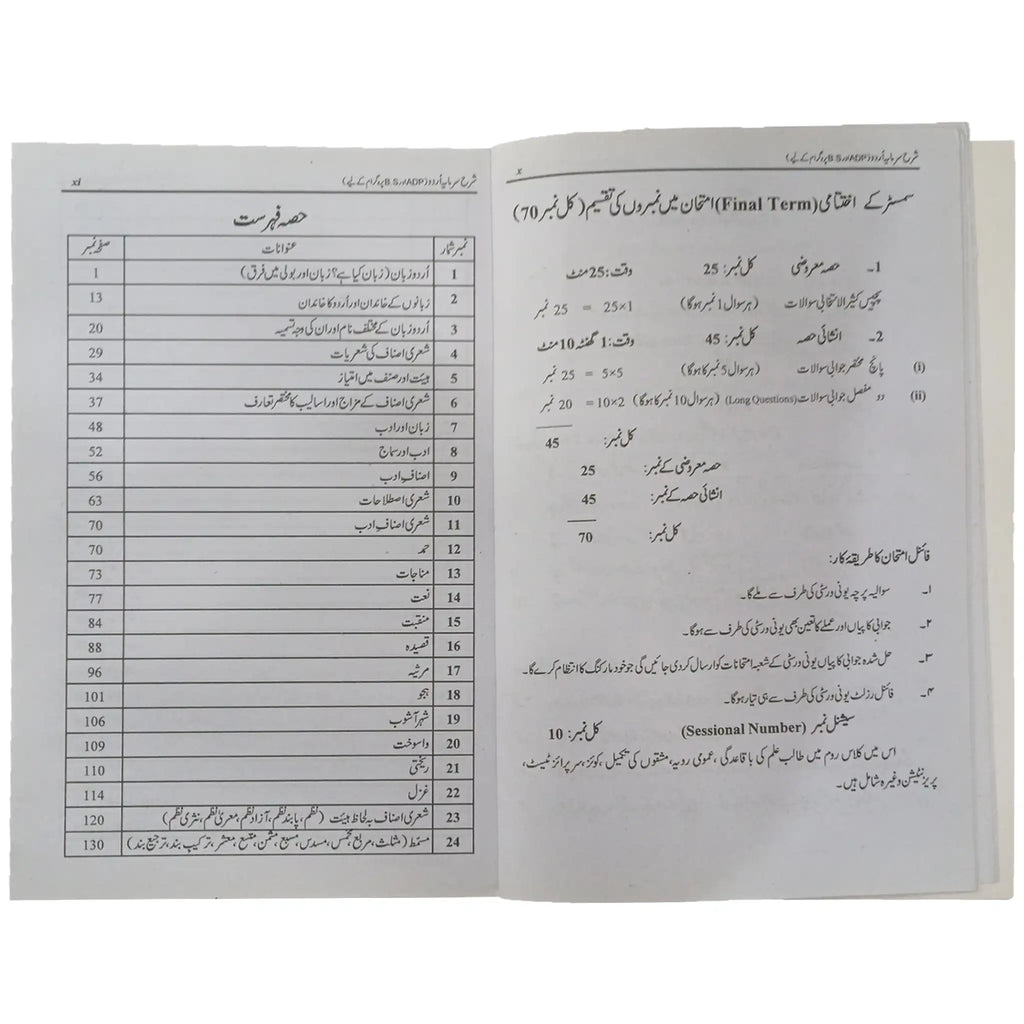 شرح سرمایہ اُردو (ADP اور B.S پروگرام کے لیے)
x
سمسٹر کے اختتامی (Final Term) امتحان میں نمبروں کی تقسیم (کل نمبر 70)
1۔ حصہ معروضی کل نمبر: 25 وقت: 25 منٹ
پچیس کثیر الانتخابی سوالات (ہر سوال 1 نمبر ہوگا) 25×1 = 25 نمبر
2۔ انشائی حصہ کل نمبر: 45 وقت: 1 گھنٹہ 10 منٹ
(i) پانچ مختصر جوابی سوالات (ہر سوال 5 نمبر کا ہوگا) 5×5 = 25 نمبر
(ii) دو مفصل جوابی سوالات (Long Questions) (ہر سوال 10 نمبر کا ہوگا) 10×2= 20 نمبر
کل نمبر: 45
حصہ معروضی کے نمبر: 25
انشائی حصہ کے نمبر: 45
کل نمبر: 70
فائنل امتحان کا طریقۂ کار:
۱۔ سوالیہ پرچہ یونی ورسٹی کی طرف سے ملے گا۔
۲۔ جوابی کاپیاں اور عملے کا تعین بھی یونی ورسٹی کی طرف سے ہوگا۔
۳۔ حل شدہ جوابی کاپیاں یونی ورسٹی کے شعبہ امتحانات کو ارسال کردی جائیں گی جو خود مارکنگ کا انتظام کرے گا۔
۴۔ فائنل رزلٹ یونی ورسٹی کی طرف سے ہی تیار ہوگا۔
سیشنل نمبر (Sessional Number) کل نمبر: 10
اس میں کلاس روم میں طالب علم کی باقاعدگی، عمومی رویہ، مشقوں کی تکمیل، کوئز، سرپرائز ٹیسٹ،
پریزنٹیشن وغیرہ شامل ہیں۔
شرح سرمایہ اُردو (ADP اور B.S پروگرام کے لیے)
xi
حصہ فہرست
نمبر شمار عنوانات صفحہ نمبر
1 اُردو زبان (زبان کیا ہے؟ زبان اور بولی میں فرق) 1
2 زبانوں کے خاندان اور اُردو کا خاندان 13
3 اُردو زبان کے مختلف نام اور ان کی وجہ تسمیہ 20
4 شعری اصناف کی شعریات 29
5 ہیئت اور صنف میں امتیاز 34
6 شعری اصناف کے مزاج اور اسالیب کا مختصر تعارف 37
7 زبان اور ادب 48
8 ادب اور سماج 52
9 اصنافِ ادب 56
10 شعری اصطلاحات 63
11 شعری اصنافِ ادب 70
12 حمد 70
13 مناجات 73
14 نعت 77
15 منقبت 84
16 قصیدہ 88
17 مرثیہ 96
18 ہجو 101
19 شہر آشوب 106
20 واسوخت 109
21 ریختی 110
22 غزل 114
23 شعری اصناف بہ لحاظ ہیئت (نظم، پابند نظم، آزاد نظم، معریٰ نظم، نثری نظم) 120
24 مسمّط (مثلث، مربع، مخمس، مسدس، مسبع، مثمن، متسع، معشر، ترکیب بند، ترجیع بند) 130